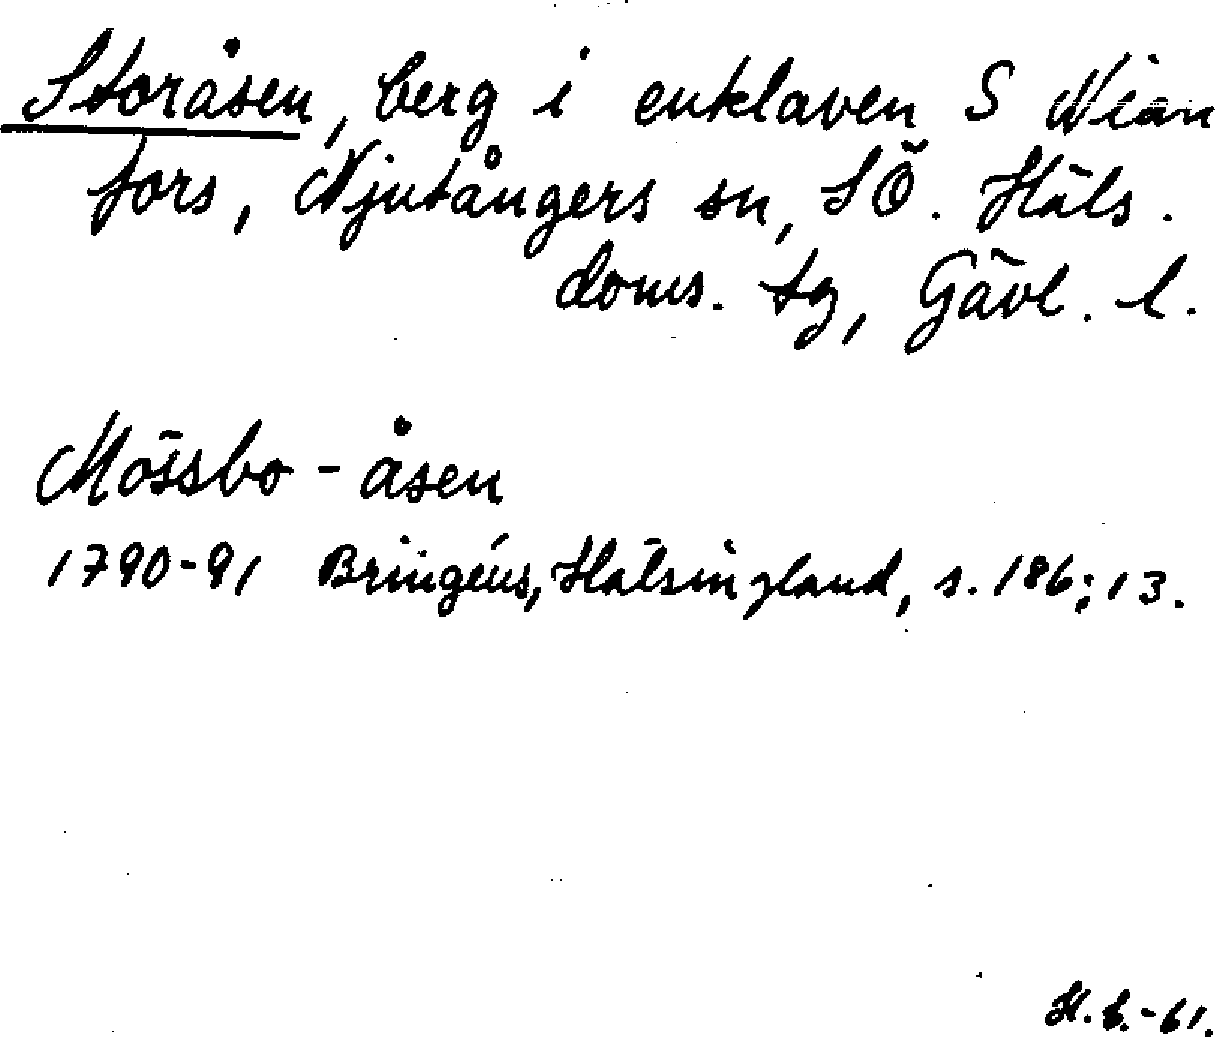 Storåsen, berg i enklaven S Nian
fors, Njutångers sn, SÖ. Häls.
doms. tg, Gävl. l.
Mössbo-åsen
1790-91 Bringéus, Hälsingland, s. 186; 13.
H.B.-61.